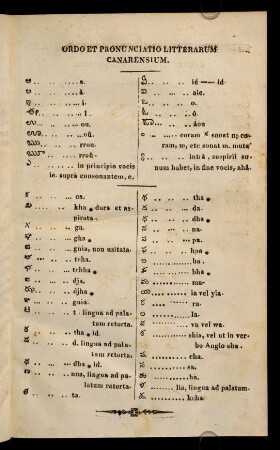 ORDO ET PRONUNCIATIO LITTERARUM
CANARENSIUM.
ಅ .. .. .. ..... a.
ಆ .. .. .. ..... â.
ಇ .. .. .. ..... i.
ಈ .. .. .. ..... î.
ಉ .. .. .. ..... ou.
ಊ .. .. .. ..... oû.
ಋ .. .. .. ..... rrou.
ೠ .. .. .. ..... rroû.
ಎ .. .. in principio vocis
ie. supra consonantem, e.
ಏ .. .. .. .. ié — id.
ಐ .. .. .. .. aïe.
ಒ .. .. .. .. o.
ಓ .. .. .. .. ô.
ಔ .. .. .. .. âou.
ಂ .. .. coram ಕ sonat n; co-
ram, m, etc sonat m. muta
ಃ .. .. intrâ, suspirii so-
num habet, in fine vocis, ahâ.
ಕ .. .. .. ..... ca.
ಖ .. .. .. kha * dura et as-
pirata
ಗ .. .. .. ..... ga.
ಘ .. .. .. ..... gha *
ಙ .. .. .. gnia, non usitata.
ಚ .. .. .. ..... tcha.
ಛ .. .. .. ..... tchha *
ಜ .. .. .. ..... dja.
ಝ .. .. .. ..... djha *
ಞ .. .. .. ..... gnia.
ಟ .. .. .. t. lingua ad pala-
tum retorta.
ಠ .. .. .. ..... tha * id.
ಡ .. .. .. d. lingua ad pala-
tum retorta.
ಢ .. .. .. ..... dha * id.
ಣ .. .. .. nna, lingua ad pa-
latum retorta.
ತ .. .. .. ..... ta.
ಥ .. .. .. ..... tha *
ದ .. .. .. ..... da.
ಧ .. .. .. ..... dha *
ನ .. .. .. ..... na.
ಪ .. .. .. ..... pa.
ಫ .. .. .. ..... hpa *
ಬ .. .. .. ..... ba.
ಭ .. .. .. ..... bha *
ಮ .. .. .. ..... ma.
ಯ .. .. .. ..... ia vel yia.
ರ .. .. .. ..... ra.
ಲ .. .. .. ..... la.
ವ .. .. .. ..... va vel wa.
ಶ .. .. .. shia, vel ut in ver-
bo Anglo sha.
ಷ .. .. .. ..... cha.
ಸ .. .. .. ..... sa.
ಹ .. .. .. ..... ha.
ಳ .. .. .. lla, lingua ad palatum.
ಕ್ಷ .. .. .. ..... kcha.